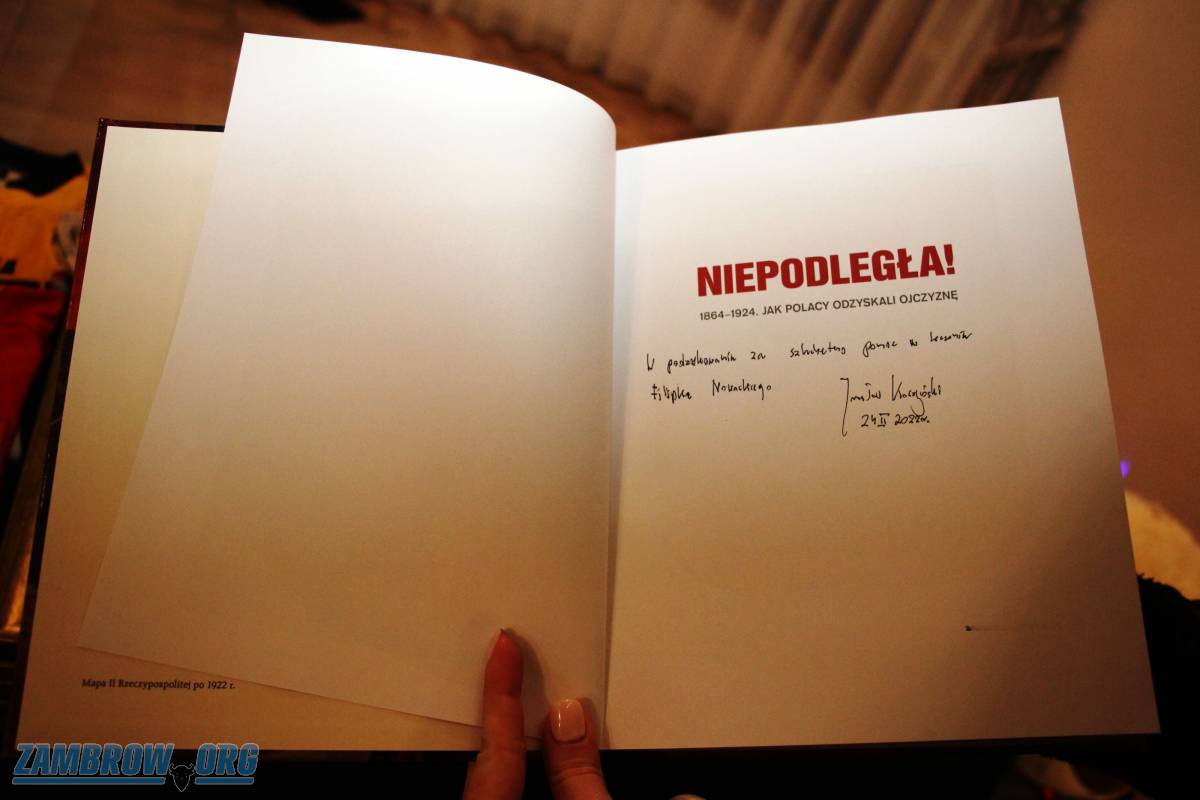 NIEPODLEGŁA!
1864–1924. JAK POLACY ODZYSKALI OJCZYZNĘ
W podziękowaniu za szlachetną pomoc w leczeniu
Filipka Nowackiego
24 II 2022r.
Mapa II Rzeczypospolitej po 1922 r.
ZAMBROW.ORG